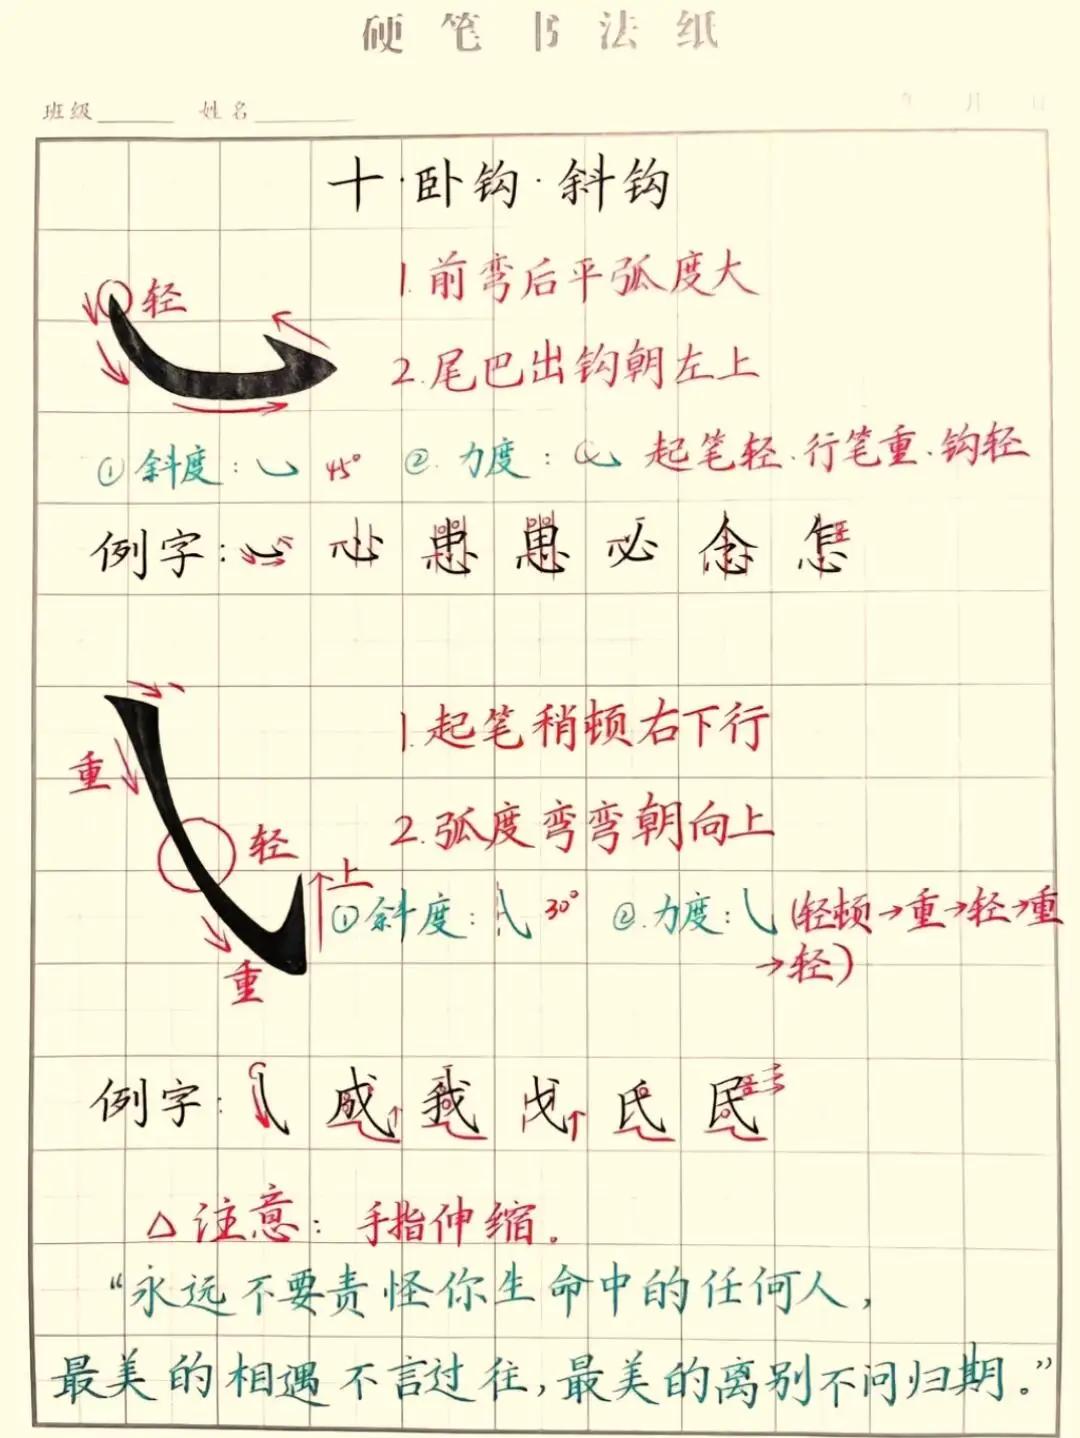 硬笔书法纸
班级 姓名 年 月 日
十·卧钩·斜钩
轻
1.前弯后平弧度大
2.尾巴出钩朝左上
①斜度: 45° ②.力度: 起笔轻.行笔重.钩轻
例字: 心 患 愚 必 念 怎
1.起笔稍顿右下行
重
2.弧度弯弯朝向上
轻
上
①斜度: 30° ②.力度: (轻顿→重→轻→重
→轻)
重
例字: 成 我 戈 氏 民
△注意: 手指伸缩。
“永远不要责怪你生命中的任何人,
最美的相遇不言过往,最美的离别不问归期。”